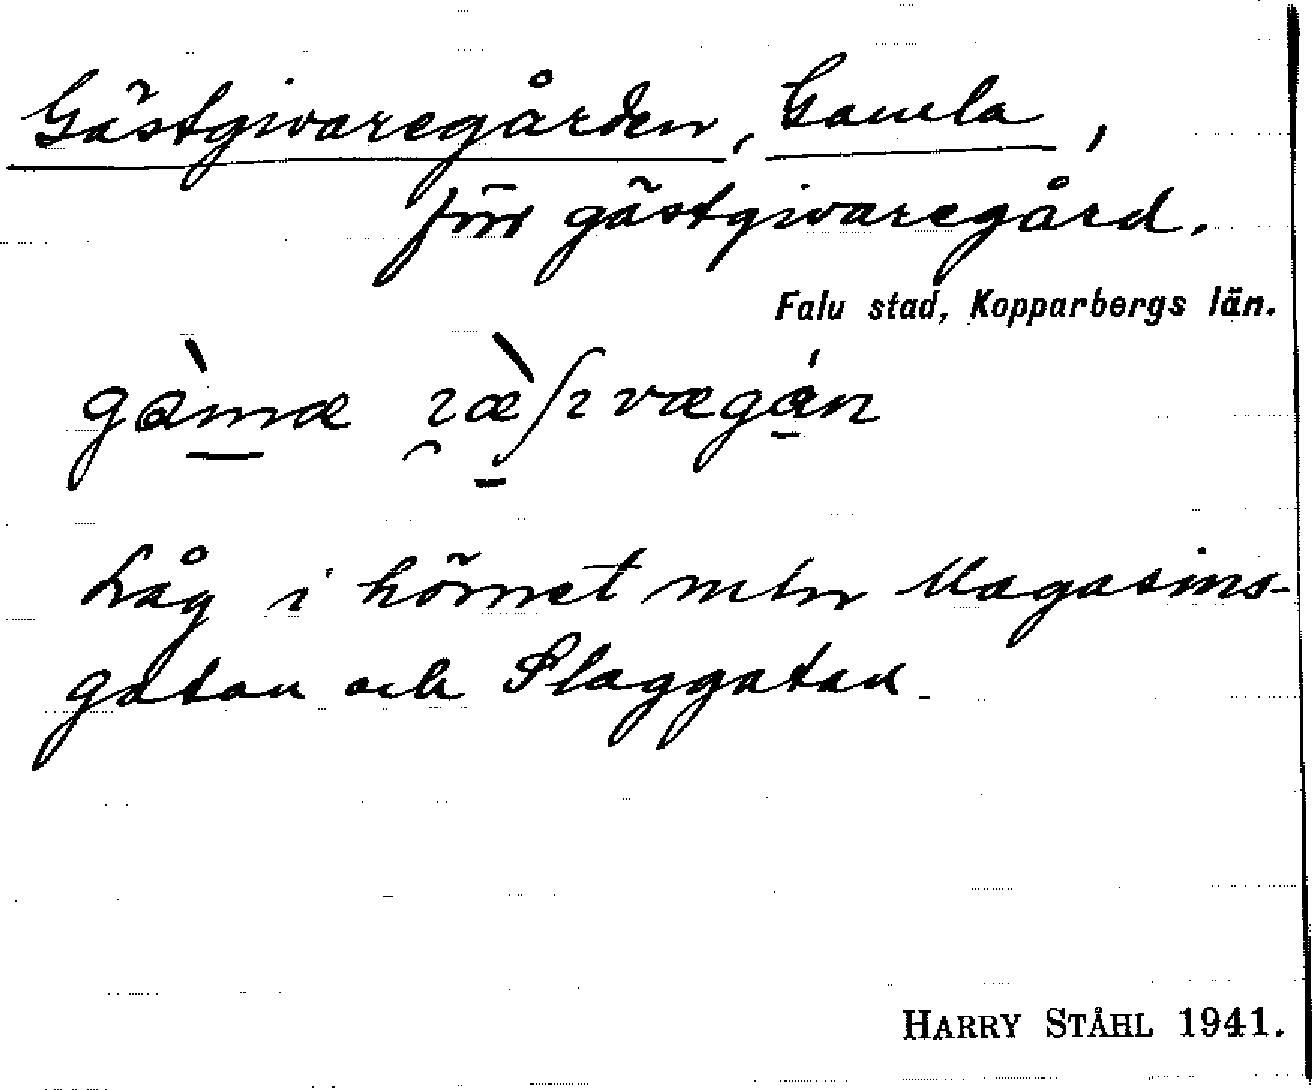 Gästgivaregården, Gamla,
förr gästgivaregård.
Falu stad, Kopparbergs län.
Låg i hörnet mln Magasins-
gatan och Slaggatan.
HARRY STÅHL 1941.